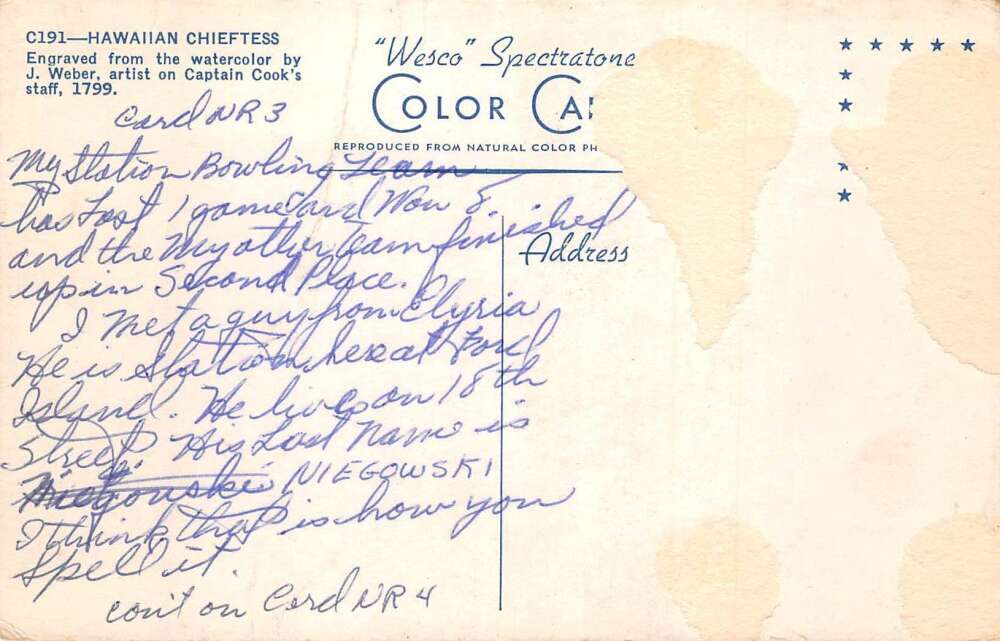 C191—HAWAIIAN CHIEFTESS
Engraved from the watercolor by
J. Weber, artist on Captain Cook's
staff, 1799.
"Wesco" Spectratone
COLOR CA
REPRODUCED FROM NATURAL COLOR PH
Address
Card NR 3
My Station Bowling Team
has Lost 1 game and Won 8.
and the My other Team finished
up in Second Place.
I Met a guy from Elyria
He is Station here at Ford
Island. He lives on 18th
Street. His Last Name is
Niegouski NIEGOWSKI
I think that is how you
Spell it.
con't on Card NR 4